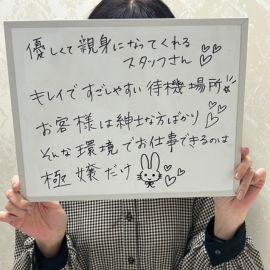 優しくて親身になってくれる
スタッフさん♡♡
キレイですごしやすい待機場所!!
お客様は紳士な方ばかり♡♡
そんな環境でお仕事できるのは
極嬢だけ♡♡